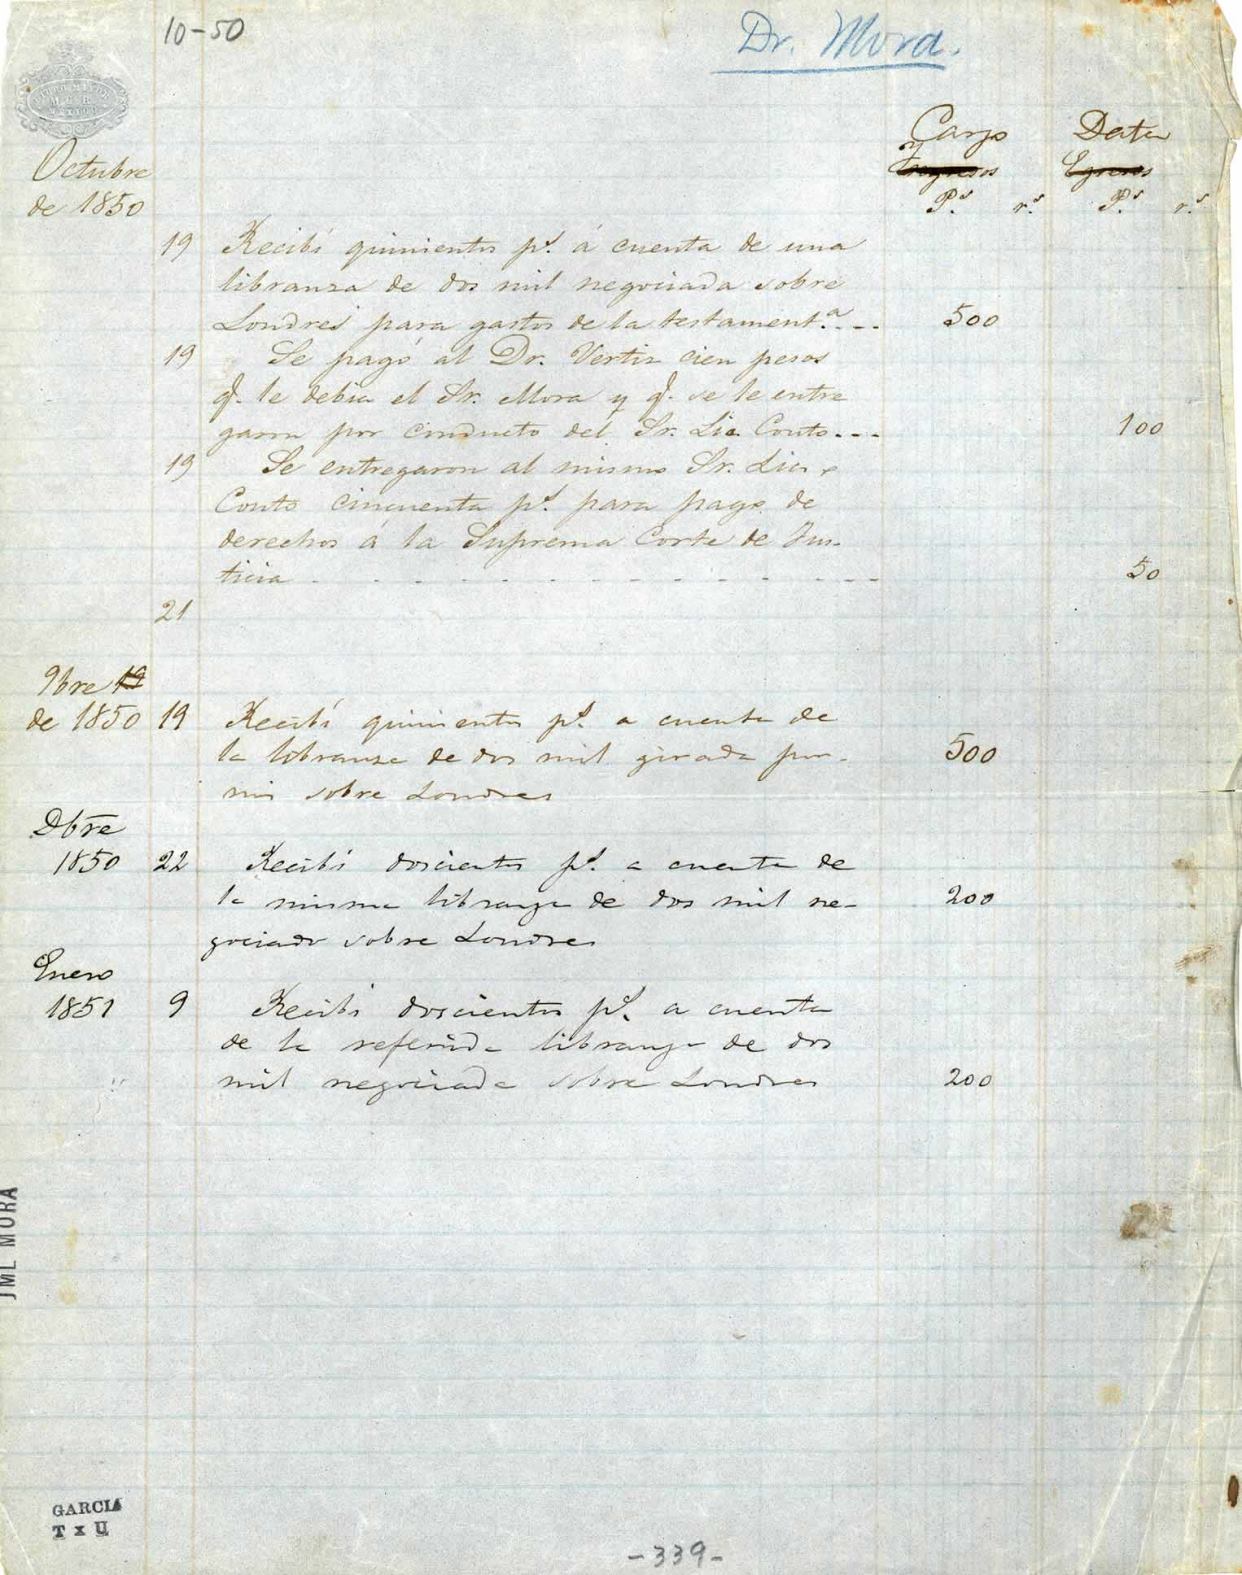 10-50
Dr. Mora.
Cargo Data
y
Ingresos Egresos
P.s r.s P.s r.s
Octubre
de 1850
19 Recibí quinientos p.s á cuenta de una
libranza de dos mil negociada sobre
Londres para gastos de la testament.a 500
19 Se pagó al Dr. Vertiz cien pesos
q. le debia el Sr. Mora y q. se le entre
garon por conducto del Sr. Lic. Couto 100
19 Se entregaron al mismo Sr. Lic.
Couto cincuenta p.s para pago de
derechos á la Suprema Corte de Jus-
ticia 50
21
9bre 19
de 1850 19 Recibí quinientos p.s a cuenta de
la libranza de dos mil girada por
mi sobre Londres 500
Dbre
1850 22 Recibí doscientos p.s a cuenta de
la misma libranza de dos mil ne-
gociada sobre Londres 200
Enero
1851 9 Recibi doscientos p.s a cuenta
de la referida libranza de dos
mil negociada sobre Londres 200
JML MORA
GARCIA
T x U
-339-